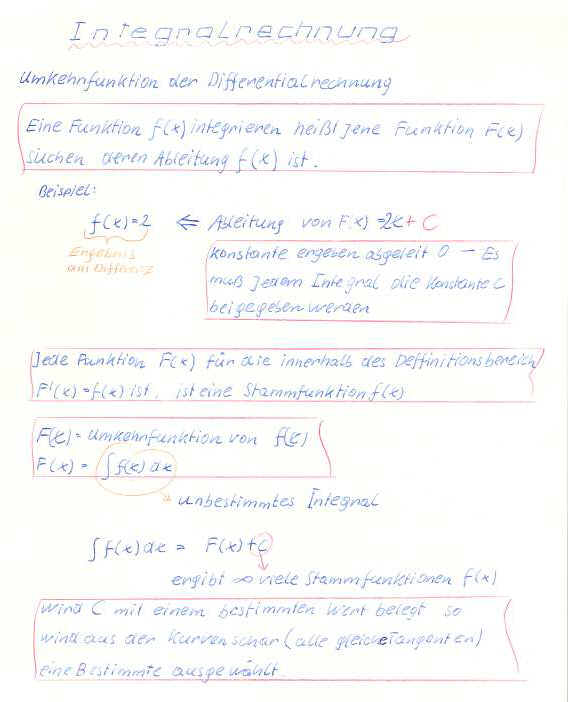 Integralrechnung
Umkehrfunktion der Differentialrechnung
Eine Funktion f(x) integrieren heißt jene Funktion F(x)
suchen deren Ableitung f(x) ist.
Beispiel:
f(x)=2 ⇐ Ableitung von F(x) =2x+ C
Ergebnis
am Differenz
Konstante ergeben abgeleit 0 – Es
muß jedem Integral die Konstante C
beigegeben werden
Jede Funktion F(x) für die innerhalb des Deffinitionsbereich
F'(x)=f(x) ist, ist eine Stammfunktion f(x)
F(x)= Umkehrfunktion von f(x)
F(x) = ∫f(x) dx
unbestimmtes Integral
∫f(x)dx = F(x)+C
ergibt ∞ viele Stammfunktionen f(x)
Wird C mit einem bestimmten Wert belegt so
wird aus der Kurvenschar (alle gleiche Tangenten)
eine Bestimmte ausgewählt.